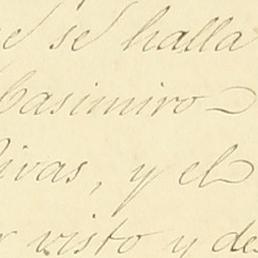 se halla
Casimiro
Rivas, y el
visto y de